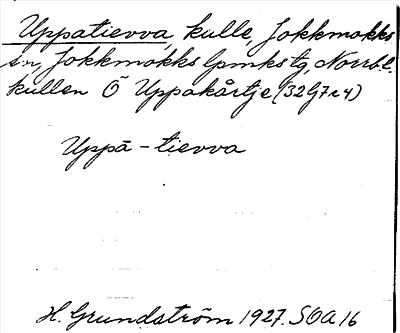 Uppatievva, kulle, Jokkmokks
sn, Jokkmokks lpmkstg, Norrb.l.
kullen Ö Uppakårtje (32G7e4)
Uppā-tievva
H. Grundström 1927. SOA 16